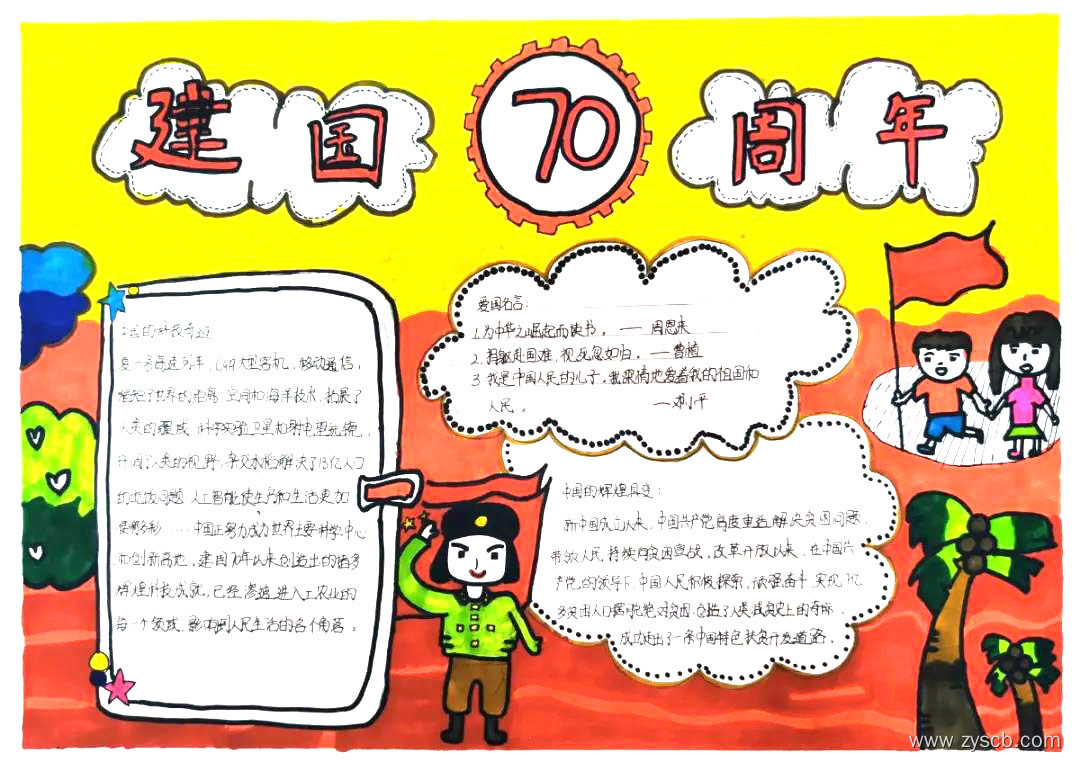 建国70周年
中国的科技奇迹
复一号高速列车，C919大型客机，移动通信，
缩短了世界的距离 空间和海洋技术，拓展了
人类的疆域 科学实验卫星和射电望远镜，
开阔了人类的视野，杂交水稻解决了13亿人口
的吃饭问题 人工智能使生产和生活更加
便利多彩……中国正努力成为世界主要科学中心
和创新高地，建国70年以来创造出的诸多
辉煌科技成就，已经渗透进入工农业的
每一个领域，影响到人民生活的各个角落。
爱国名言：
1.为中华之崛起而读书。——周恩来
2.捐躯赴国难，视死忽如归。——曹植
3 我是中国人民的儿子，我深情地爱着我的祖国和
人民。——邓小平
中国的辉煌巨变：
新中国成立以来，中国共产党高度重视解决贫困问题，
带领人民持续向贫困宣战，改革开放以来，在中国共
产党的领导下，中国人民积极探索，顽强奋斗，实现7亿
多贫困人口摆脱绝对贫困，创造了人类减贫史上的奇迹，
成功走出了一条中国特色扶贫开发道路。
www.zyscb.com